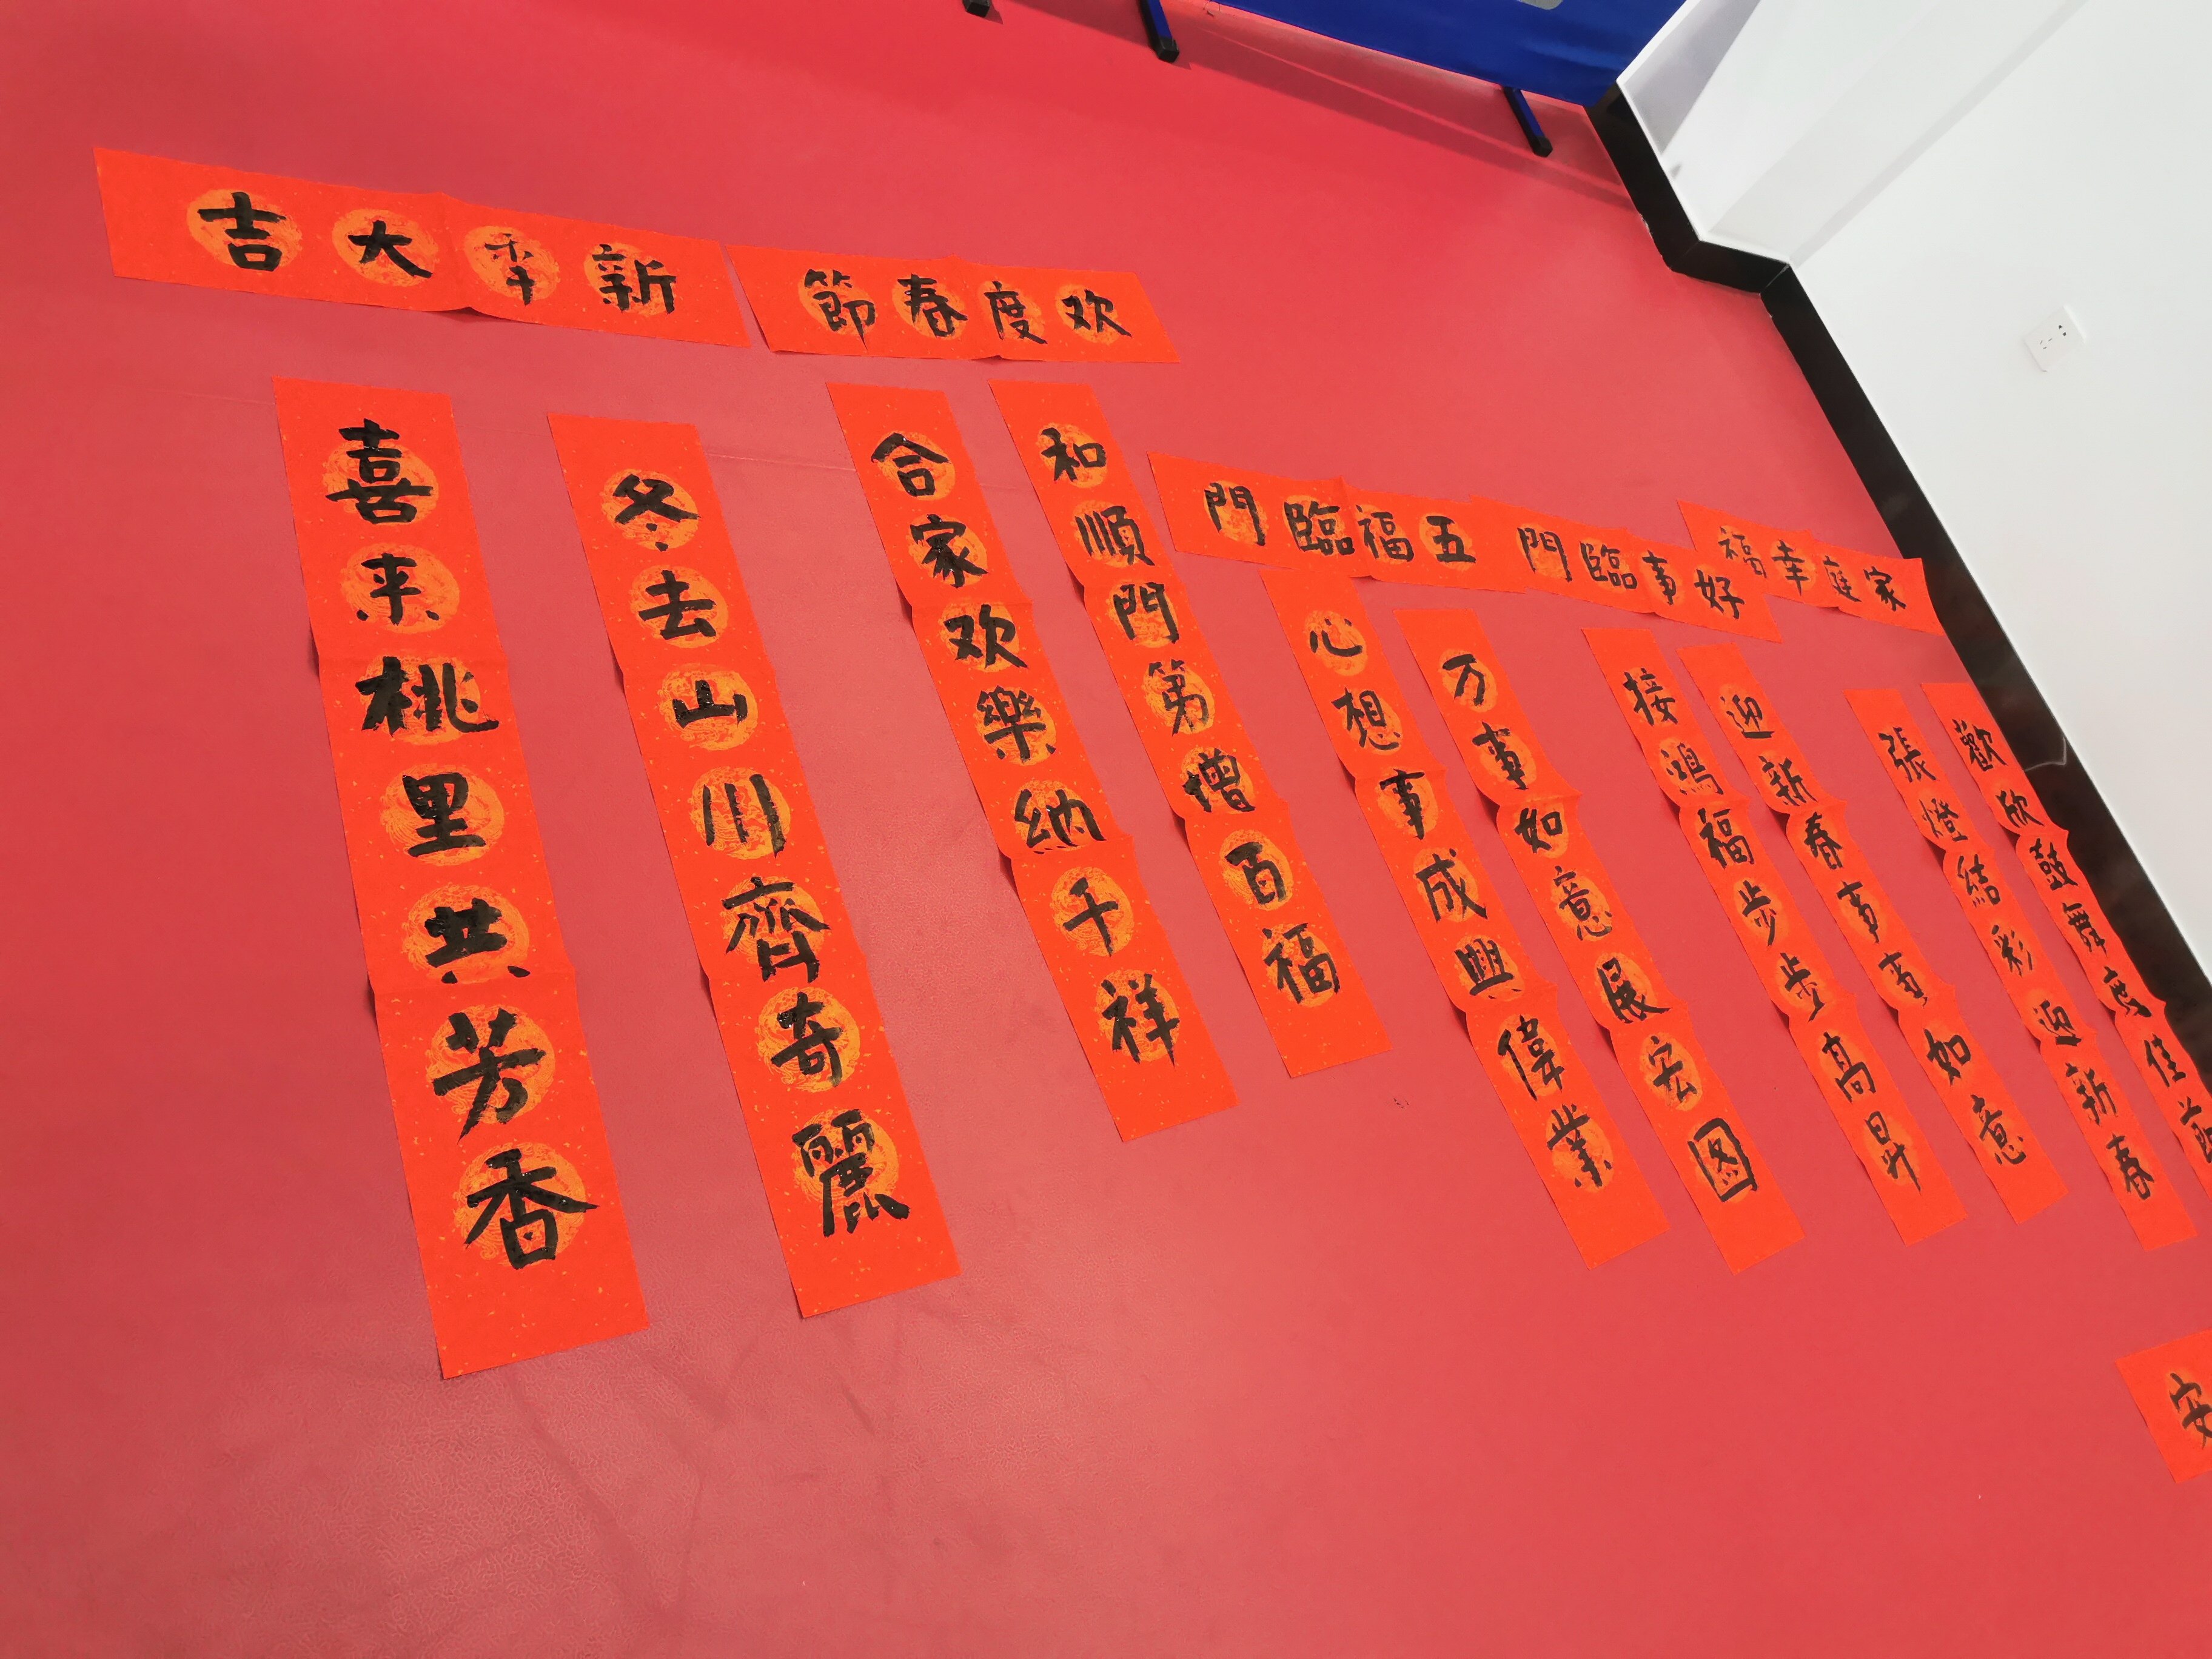 家庭幸福
歡欣鼓舞度佳節
張燈結彩迎新春
好事臨門
迎新春事事如意
接鴻福步步高昇
五福臨門
万事如意展宏图
心想事成興偉業
欢度春節
和順門第僧百福
合家欢樂纳千祥
新秊大吉
冬去山川齊奇麗
喜来桃里共芳香
安